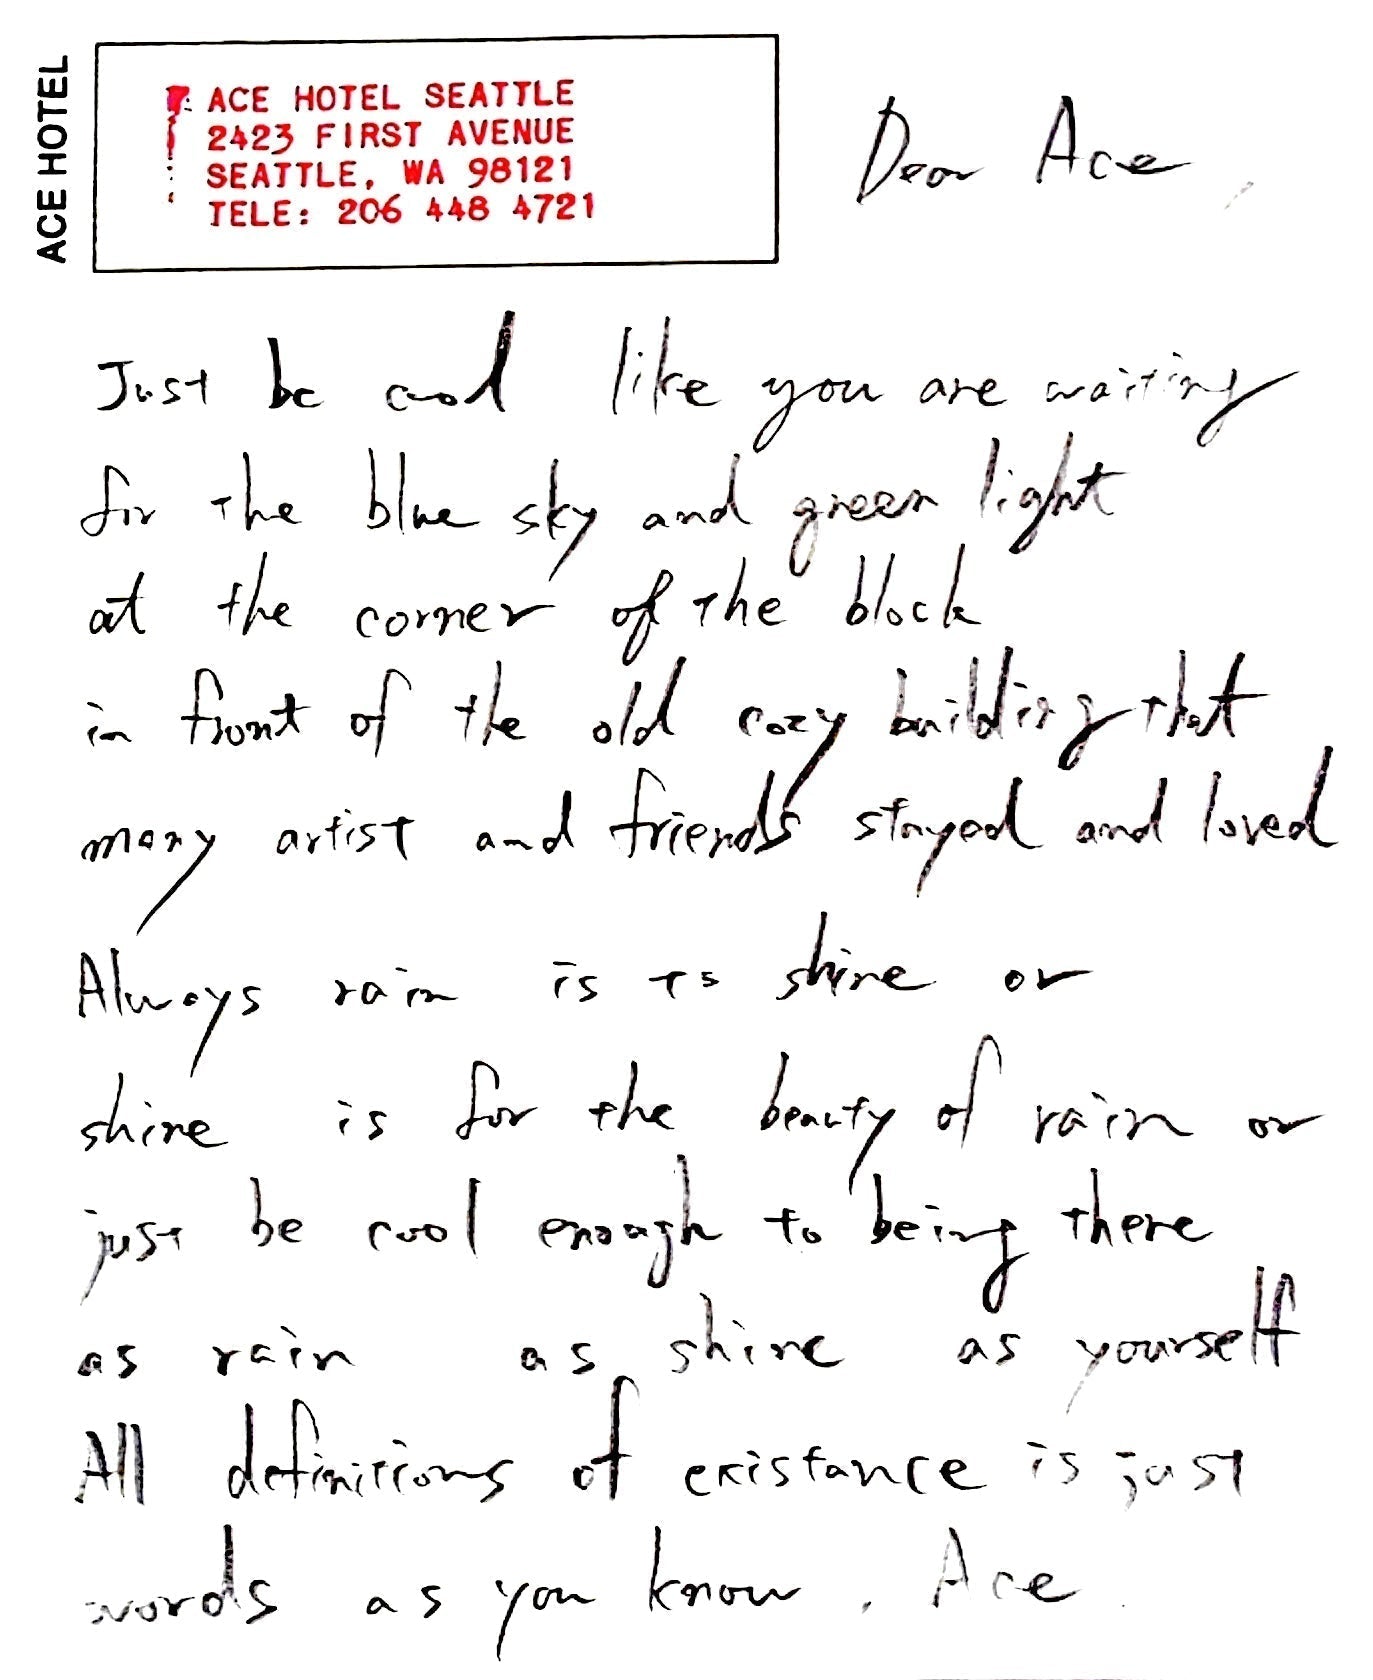 ACE HOTEL
ACE HOTEL SEATTLE
2423 FIRST AVENUE
SEATTLE, WA 98121
TELE: 206 448 4721
Dear Ace,
Just be cool like you are waiting
for the blue sky and green light
at the corner of the block
in front of the old cozy building that
many artist and friends stayed and loved
Always rain is to shine or
shine is for the beauty of rain or
just be cool enough to being there
as rain as shine as yourself
All definitions of existance is just
words as you know, Ace.